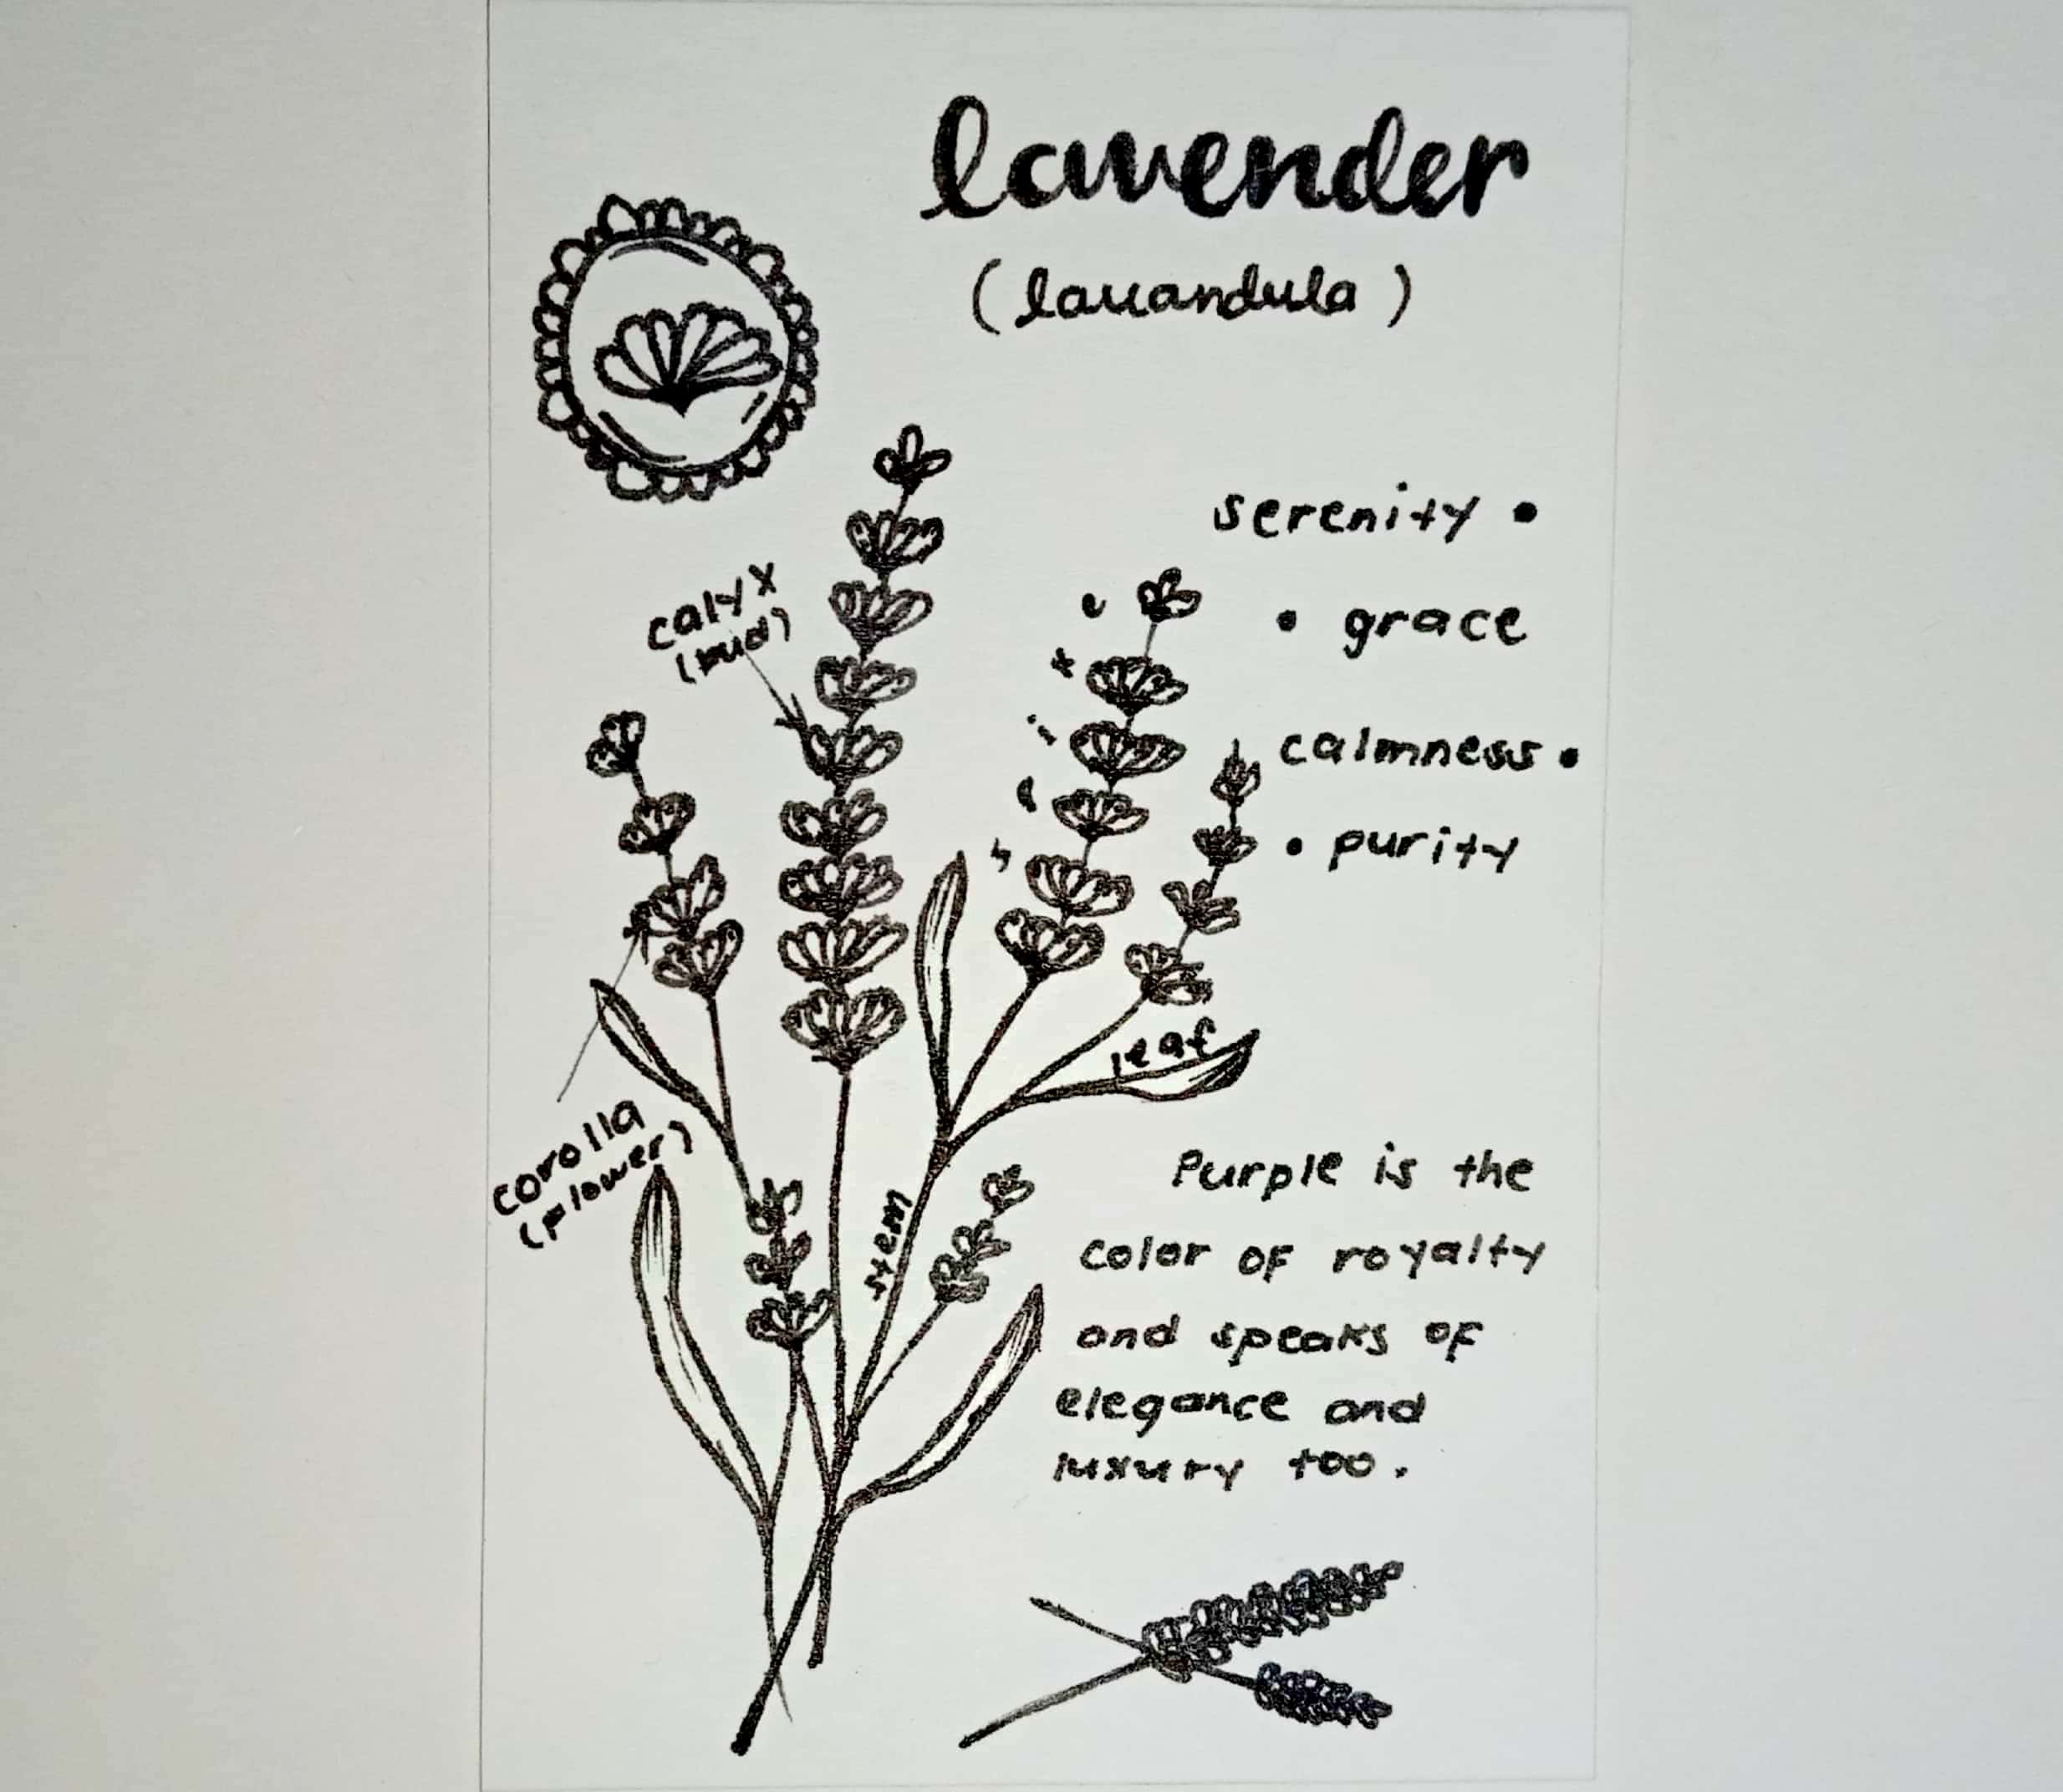 lavender
(lavandula)
serenity •
• grace
calmness •
• purity
calyx
(bud)
spike
leaf
corolla
(flower)
stem
Purple is the
color of royalty
and speaks of
elegance and
luxury too.